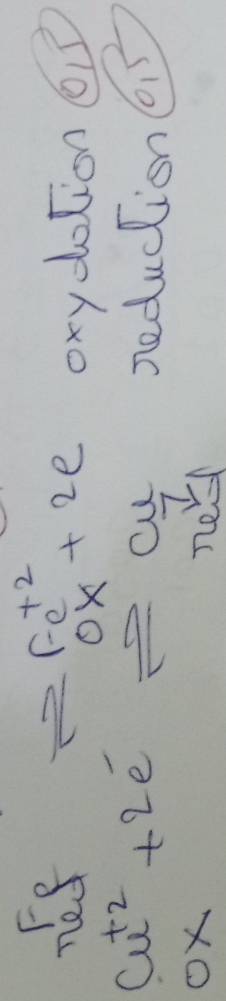 Fe ⇌ Fe+2 + 2e oxydation 0,5
red OX
Cu+2 + 2é ⇌ Cu reduction 0,5
OX red